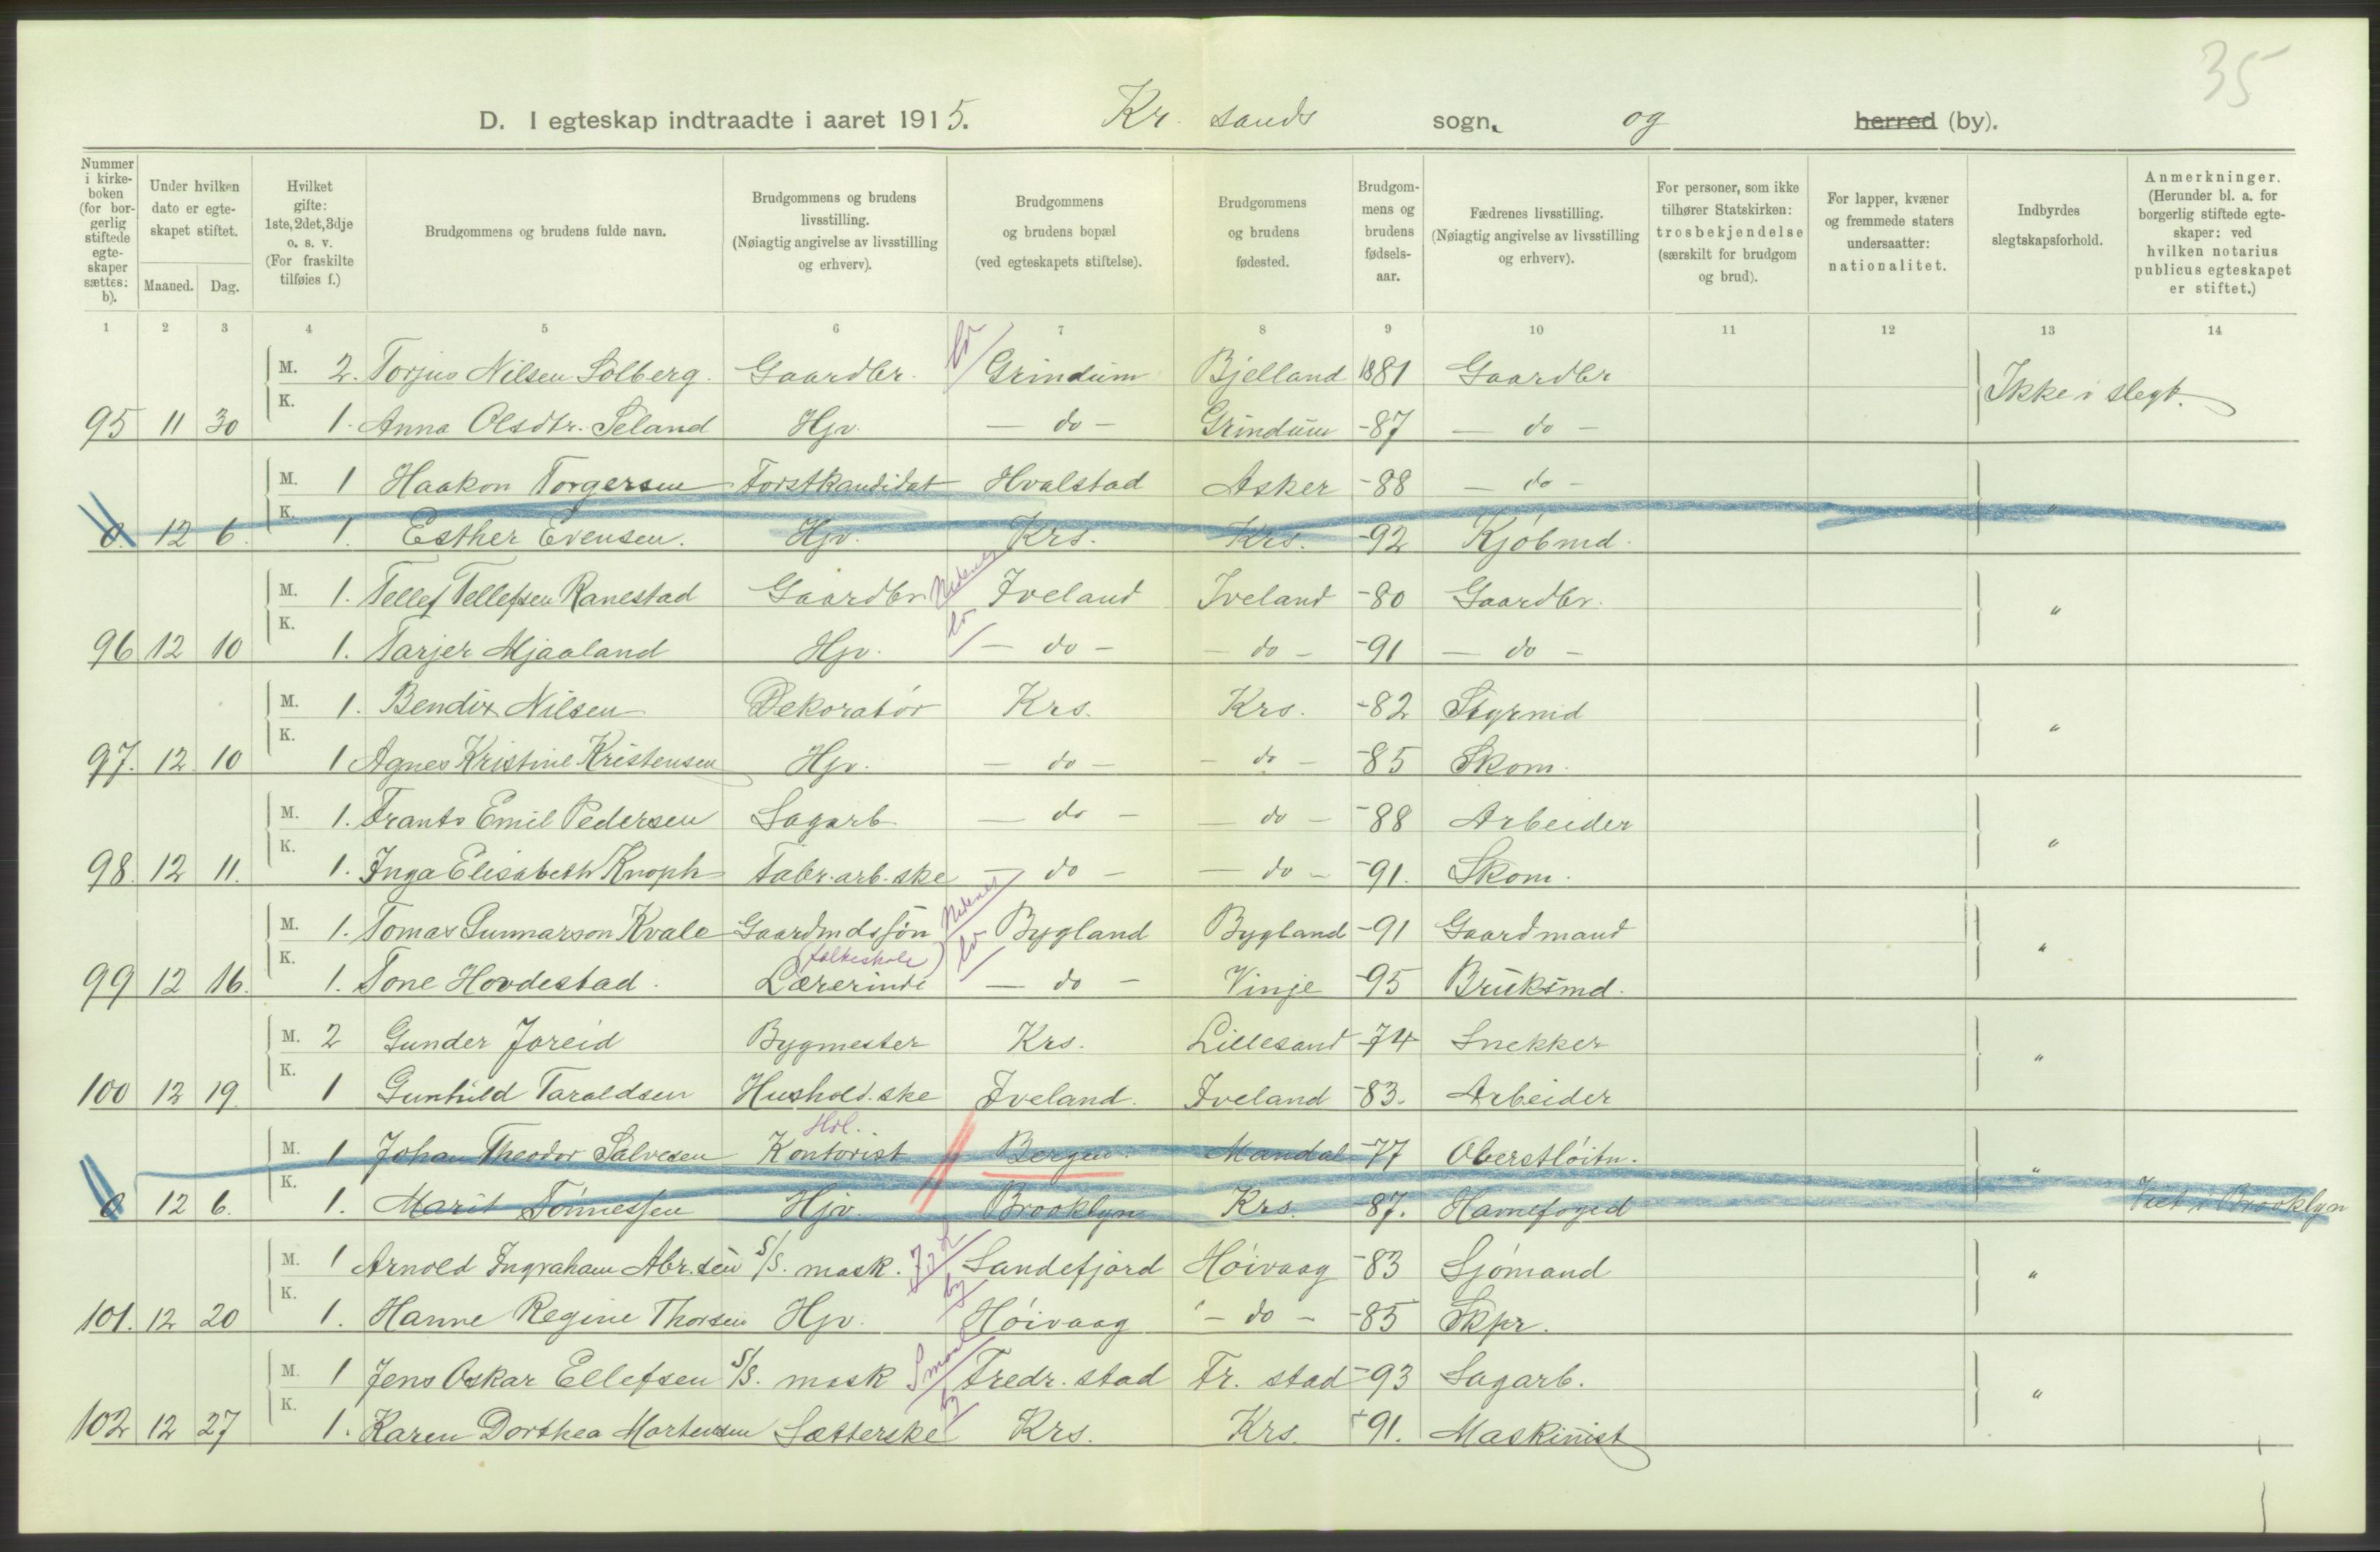 35
D. I egteskap indtraadte i aaret 1915. Kr. sands sogn, og herred (by).
Nummer i kirkeboken (for borgerlig stiftede egteskaper sættes: b).
Under hvilken dato er egteskapet stiftet.
Maaned. Dag.
Hvilket gifte: 1ste, 2det, 3dje o. s. v. (For fraskilte tilføies f.)
Brudgommens og brudens fulde navn.
Brudgommens og brudens livsstilling. (Nøiagtig angivelse av livsstilling og erhverv).
Brudgommens og brudens bopæl (ved egteskapets stiftelse).
Brudgommens og brudens fødested.
Brudgommens og brudens fødselsaar.
Fædrenes livsstilling. (Nøiagtig angivelse av livsstilling og erhverv).
For personer, som ikke tilhører Statskirken: trosbekjendelse (særskilt for brudgom og brud).
For lapper, kvæner og fremmede staters undersaatter: nationalitet.
Indbyrdes slegtskapsforhold.
Anmerkninger. (Herunder bl. a. for borgerlig stiftede egteskaper: ved hvilken notarius publicus egteskapet er stiftet.)
1 2 3 4 5 6 7 8 9 10 11 12 13 14
M. 2. Torjus Nilsen Solberg. Gaardbr. Grindum Bjelland 1881 Gaardbr Ikke i slegt.
95 11 30 K. 1. Anna Olsdtr. Seland Hjv. — do — Grindum -87 — do —
M. 1 Haakon Torgersen Forstkandidat Hvalstad Asker -88 — do — "
0. 12 6. K. 1. Esther Evensen. Hjv. Krs. Krs. -92 Kjøbmd.
M. 1. Tellef Tellefsen Ranestad Gaardbr Nedenes Iveland Iveland -80 Gaardbr. "
96 12 10 K. 1. Tarjer Mjaaland Hjv. — do — — do — -91 — do —
M. 1. Bendix Nilsen Dekoratør Krs. Krs. -82 Styrmd "
97. 12 10 K. 1 Agnes Kristine Kristensen Hjv. — do — — do — -85 Skom.
M. 1. Frants Emil Pedersen Sagarb. — do — — do — -88 Arbeider "
98. 12 11. K. 1. Inga Elisabeth Knoph Fabr.arb.ske — do — — do — -91. Skom.
M. 1. Tomas Gunnarson Kvale Gaardmdssøn Nedenes Bygland Bygland -91 Gaardmand "
(folkeskole)
99 12 16. K. 1. Tone Hovdestad. Lærerinde — do — Vinje -95 Bruksmd.
M. 2 Gunder Joreid Bygmester Krs. Lillesand -74 Snekker "
100 12 19. K. 1 Gunhild Taraldsen Hushold.ske Iveland. Iveland -83. Arbeider
Hdl.
M. 1 Johan Theodor Salvesen Kontorist Bergen. Mandal -77 Oberstløitn. "
0 12 6. K. 1. Marit Tønnessen Hjv. Brooklyn Krs. -87. Havnefoged Viet i Brooklyn
M. 1 Arnold Ingraham Abr.sen S/S. mask. Sandefjord Høivaag -83 Sjømand "
101. 12 20 K. 1. Hanne Regine Thorsen Hjv. Høivaag — do — -85 Skpr.
M. 1 Jens Oskar Ellefsen S/S. mask Fredr.stad Fr. stad -93 Sagarb. "
102 12 27 K. 1. Karen Dorthea Mortensen Sætterske Krs. Krs. -91. Maskinist